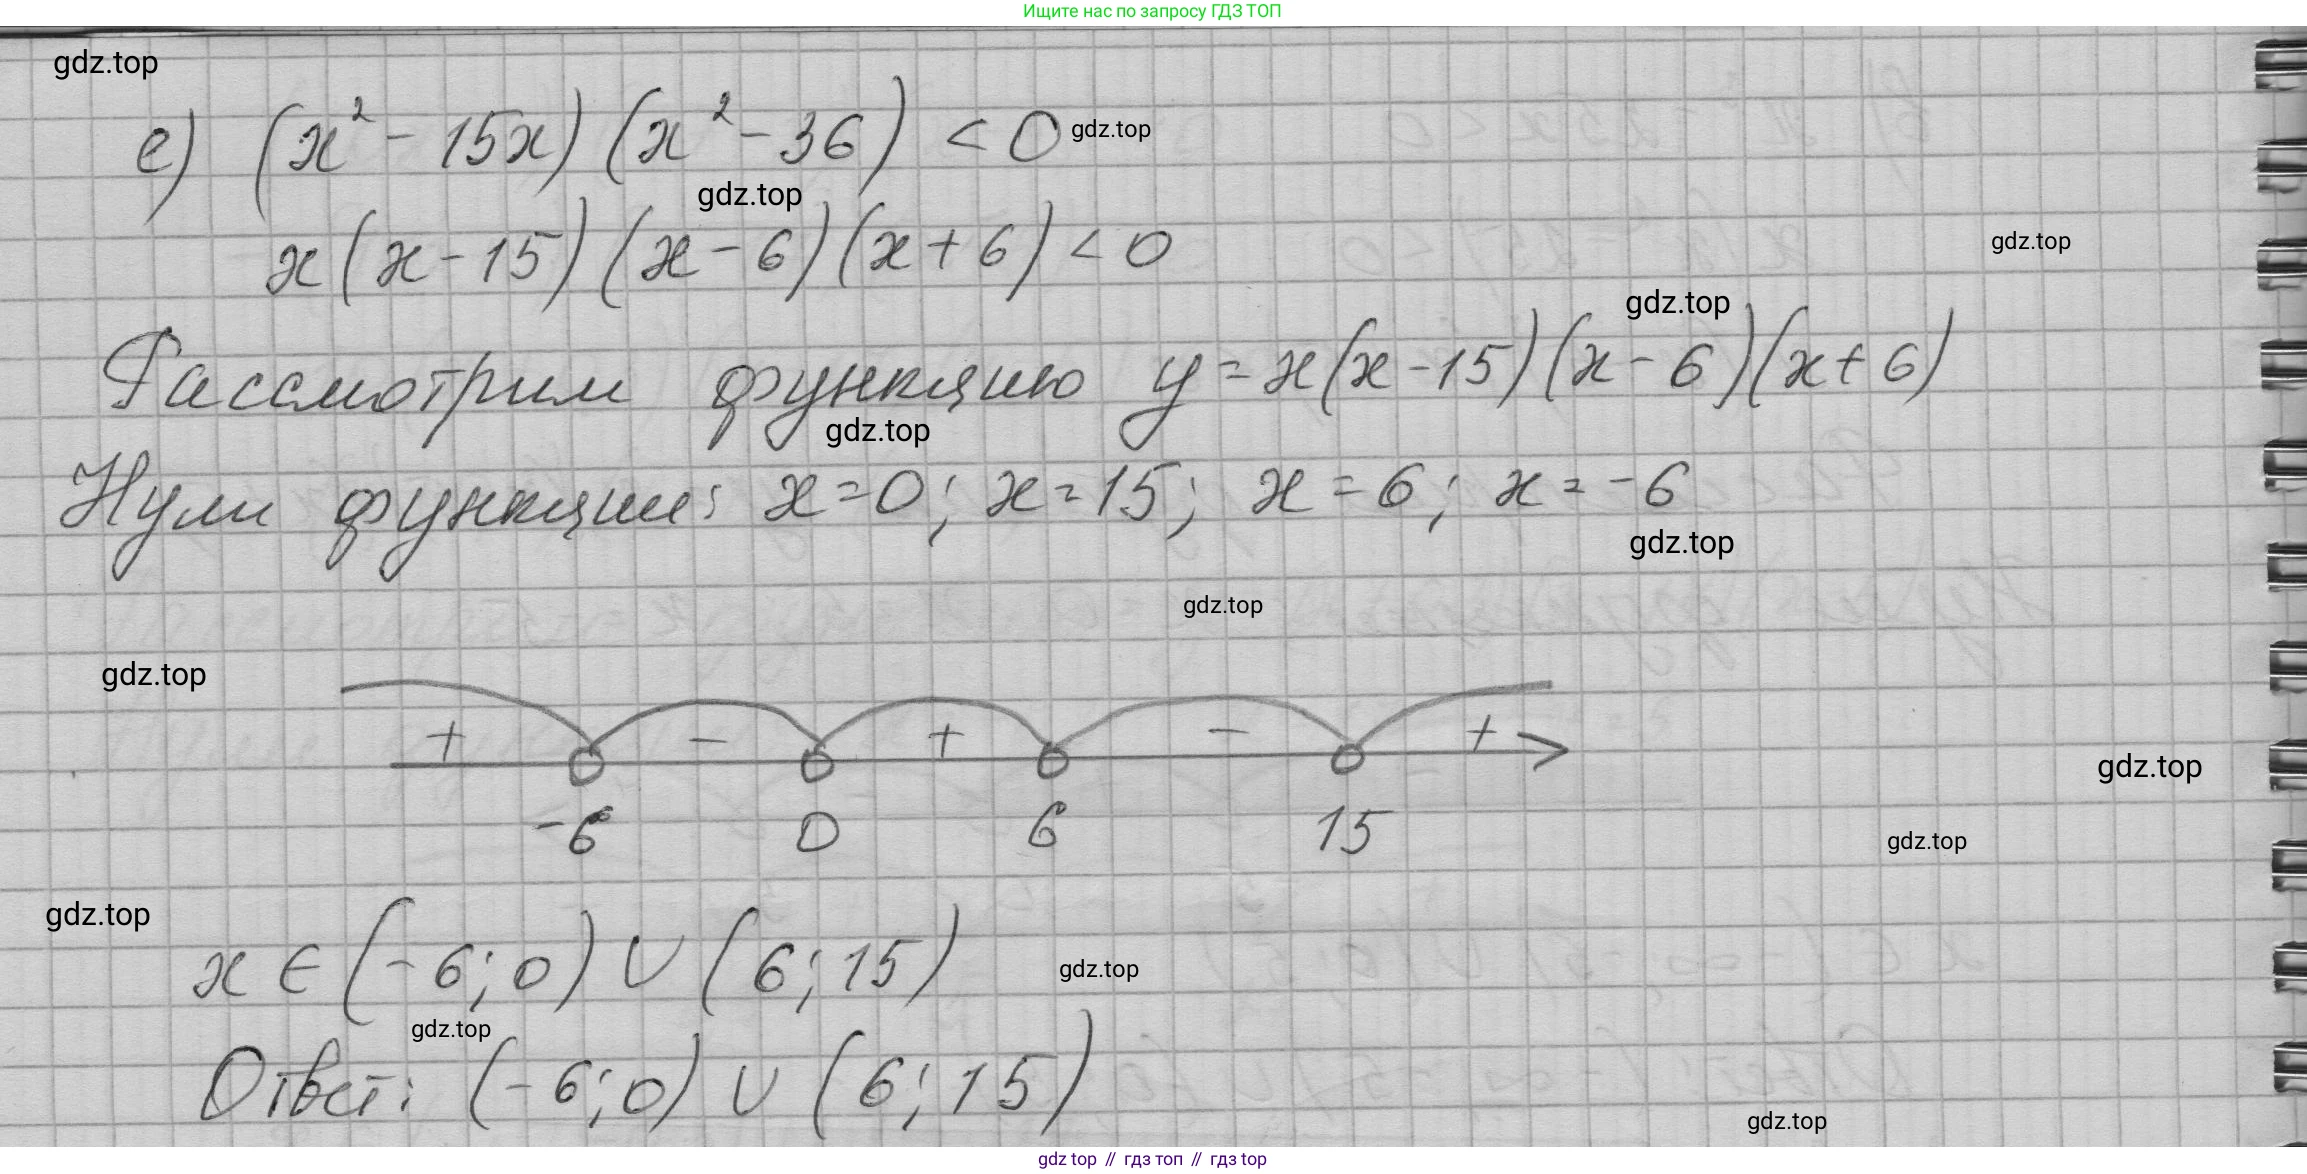 Ищите нас по запросу ГДЗ ТОП
gdz.top
е) (x² - 15x) (x² - 36) < 0 gdz.top
gdz.top
x(x - 15)(x - 6)(x + 6) < 0
gdz.top
gdz.top
Рассмотрим функцию y = x(x - 15)(x - 6)(x + 6)
gdz.top
Нули функции: x = 0; x = 15; x = 6; x = -6
gdz.top
gdz.top
gdz.top
+ - + - +
gdz.top
-6 0 6 15
gdz.top
gdz.top
x ∈ (-6; 0) ∪ (6; 15)
gdz.top
gdz.top
Ответ: (-6; 0) ∪ (6; 15)
gdz.top
gdz top // гдз топ // гдз top